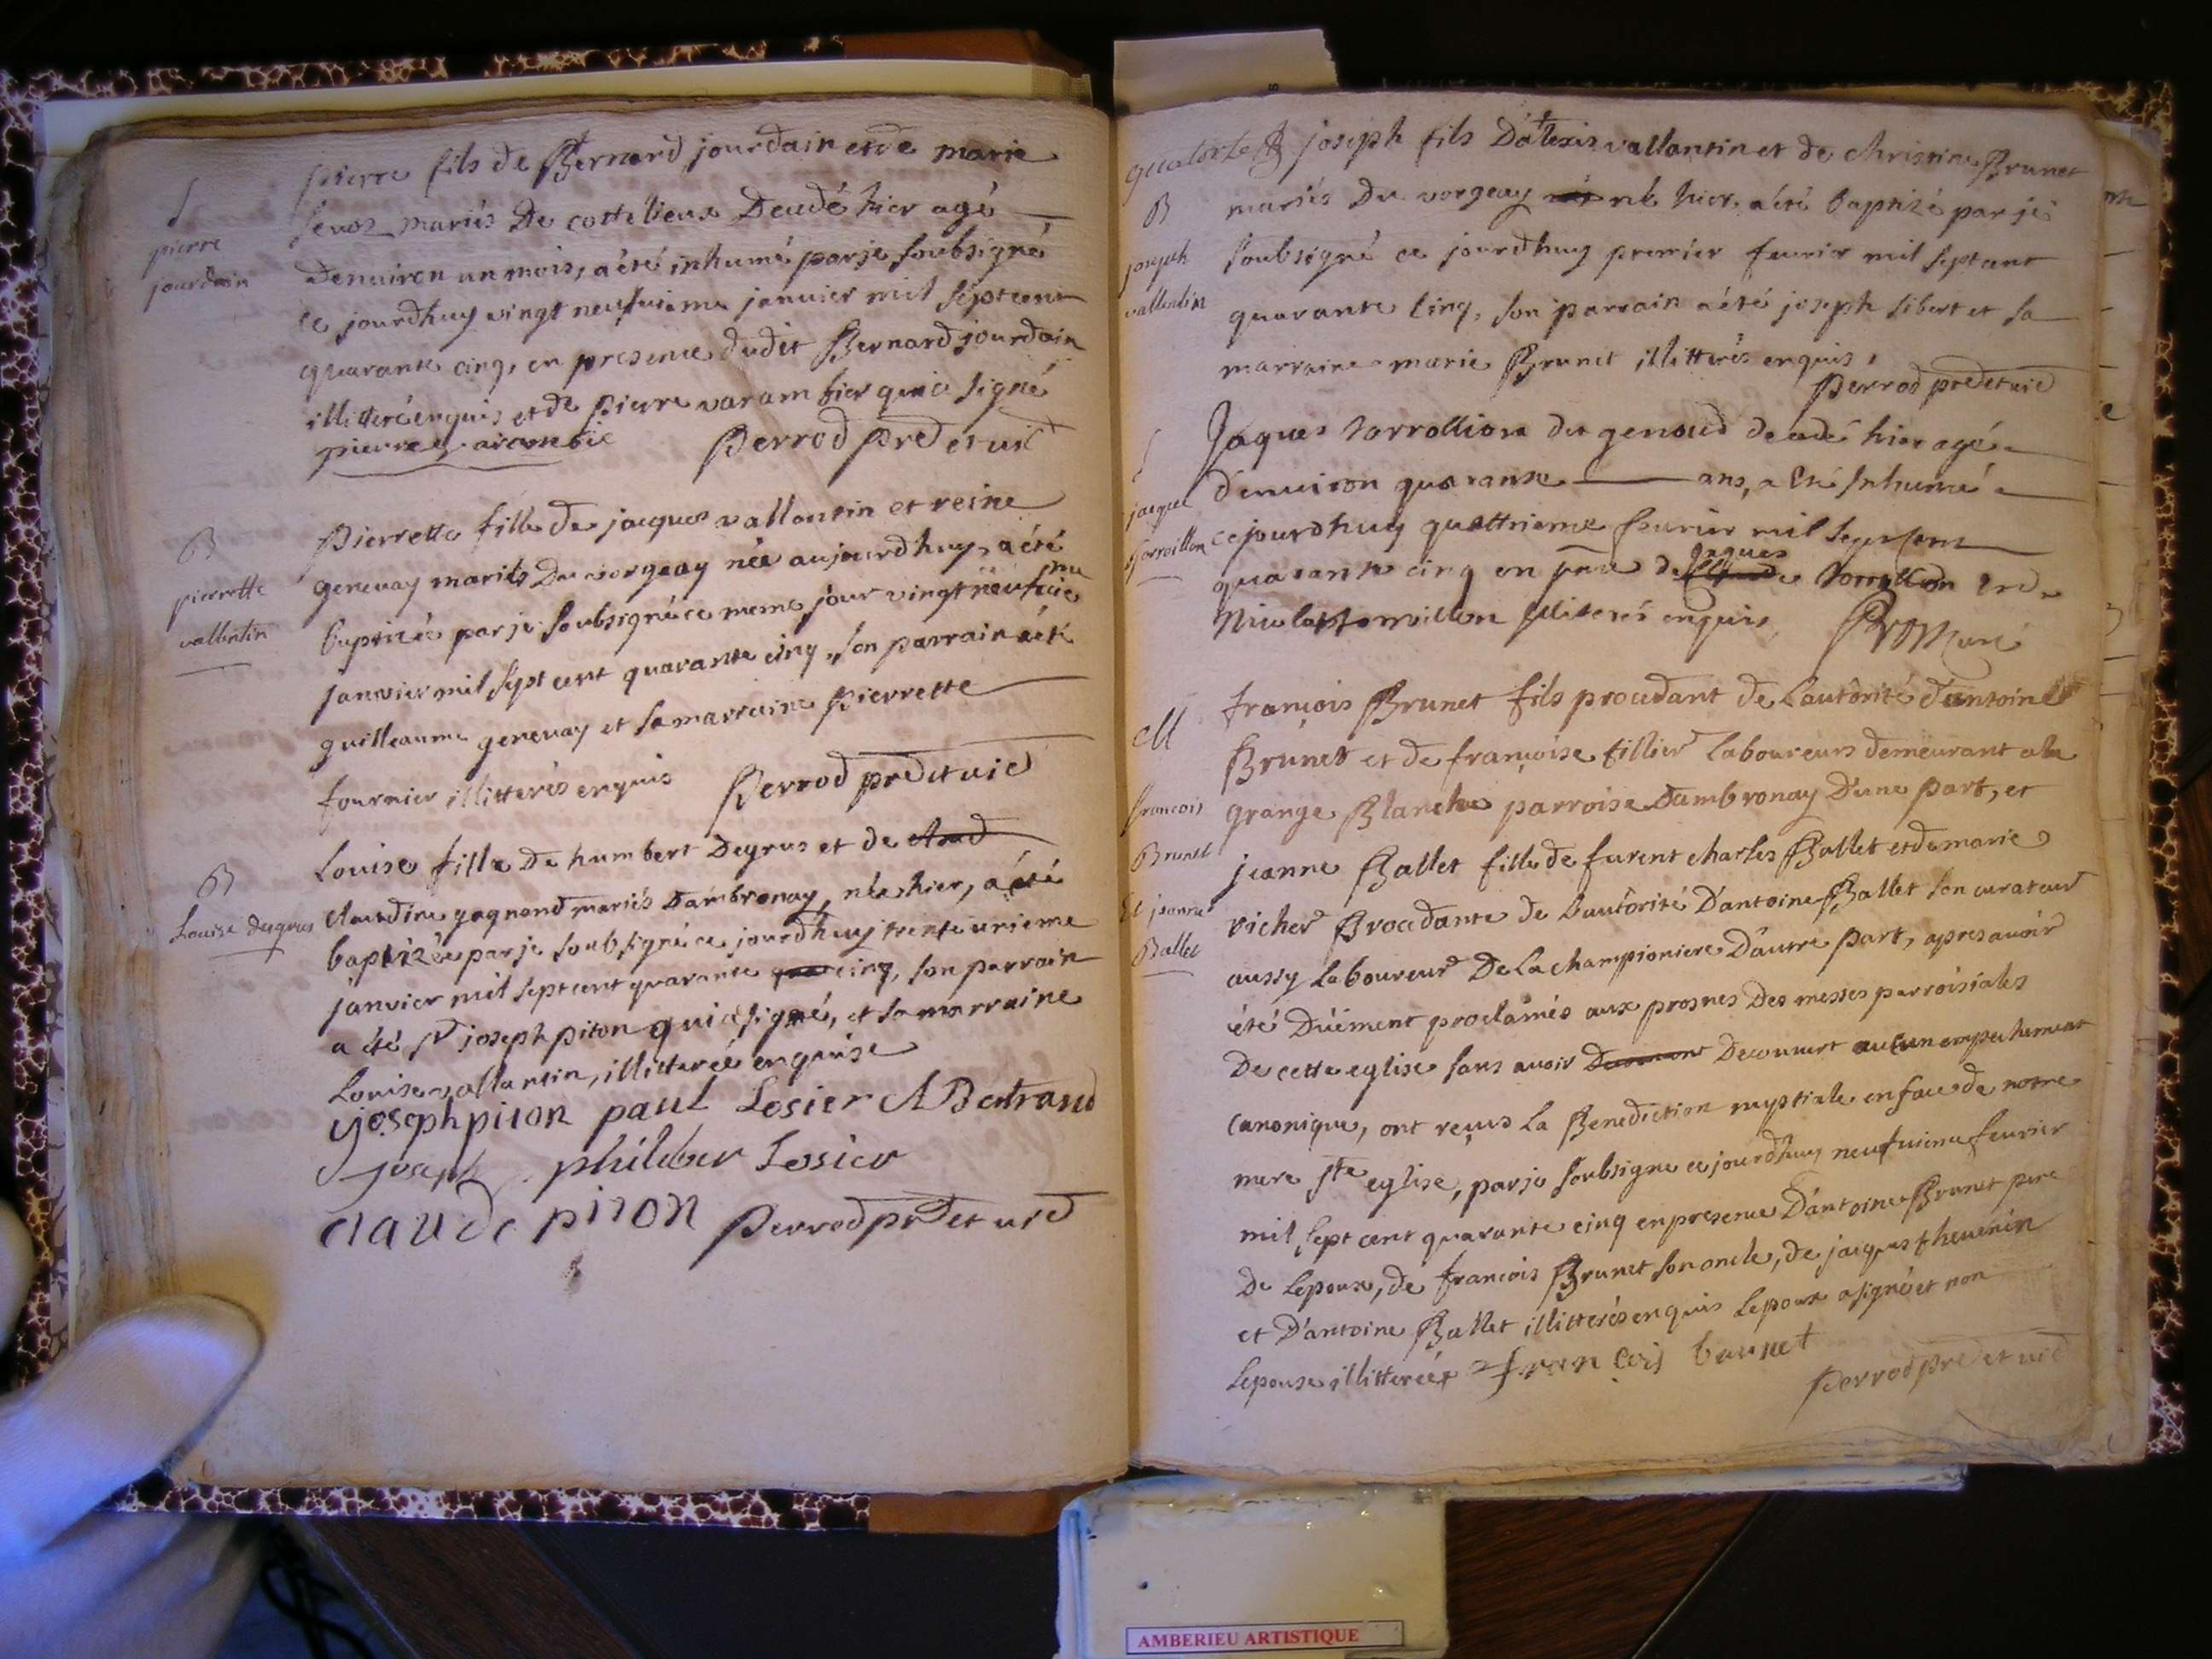 S
pierre
jourdain
pierre fils de Bernard jourdain et de marie
seuoz mariés de cottelieux Decedé hier agé
denuiron un mois, a été inhumé par je soubsigné
ce jourdhuy vingt neufuieme januier mil sept cent
quarante cinq, en presence dudit Bernard jourdain
illitteré enquis et de pierre varambier qui a signé
pierre varambie Perrod pre et vic
B
pierrette
vallentin
Pierrette fille de jacques vallantin et reine
geneuay mariés Du vorgeay née aujourdhuy, a été
baptizée par je soubsigné ce meme jour vingt neufuieme
januier mil sept cent quarante cinq, son parrain a été
guilleaume geneuay et sa marraine pierrette
fournier illitterés enquis Perrod pre et vic
B
Louise degrus
Louise fille De humbert Degrus et de
claudine gagnend mariés Dambronay, née hier, a été
baptizée par je soubsigné ce jourdhuy trente unieme
januier mil sept cent quarante cinq, son parrain
a été Sr joseph piton qui a signé, et sa marraine
Louise vallantin, illitterée enquise
joseph piton paul Losier A Bertrand
joseph philiber Losier
claude piton Perrod pre et vic
quatorze
B
joseph
vallentin
joseph fils D'alexis vallantin et de christine Brunet
mariés Du vorgeay né hier, a été baptizé par je
soubsigné ce jourdhuy premier feurier mil sept cent
quarante cinq, son parrain a été joseph sibert et sa
marraine marie Brunet illitterés enquis,
Perrod pre et vic
S
jacque
Torroillon
Jaques Torrollion du genoud decedé hier agé
denuiron quarante ans, a été inhumé
ce jourdhuy quattrieme feurier mil sept cent
quarante cinq en pnce de jaques Torrollion et de
Nicolas Torroillon illiterés enquis, Curé
M
francois
Brunet
Et jeanne
Ballet
françois Brunet fils procedant de L'autôrité d'antoine
Brunet et de françoise fillier Laboureurs demeurant a la
grange Blanche parroise Dambronay D'une part, et
jeanne Ballet fille de furent charles Ballet et de marie
richer Procedante de L'autôrité D'antoine Ballet son curateur
aussy Laboureur De La championiere D'autre part, apres auoir
été Duëment proclamés aux prosnes Des messes parroisiales
De cette eglise sans auoir Decouuert aucun empechement
canonique, ont reçus La Benediction nuptiale en face de notre
mere ste eglise, par je soubsigné ce jourdhuy neufuieme feurier
mil sept cent quarante cinq en presence D'antoine Brunet pere
De Lepoux, de francois Brunet son oncle, de jacques theuenin
et D'antoine Ballet illitterés enquis Lepoux a signé et non
Lepouse illitterée francois brunet
Perrod pre et vic
AMBERIEU ARTISTIQUE